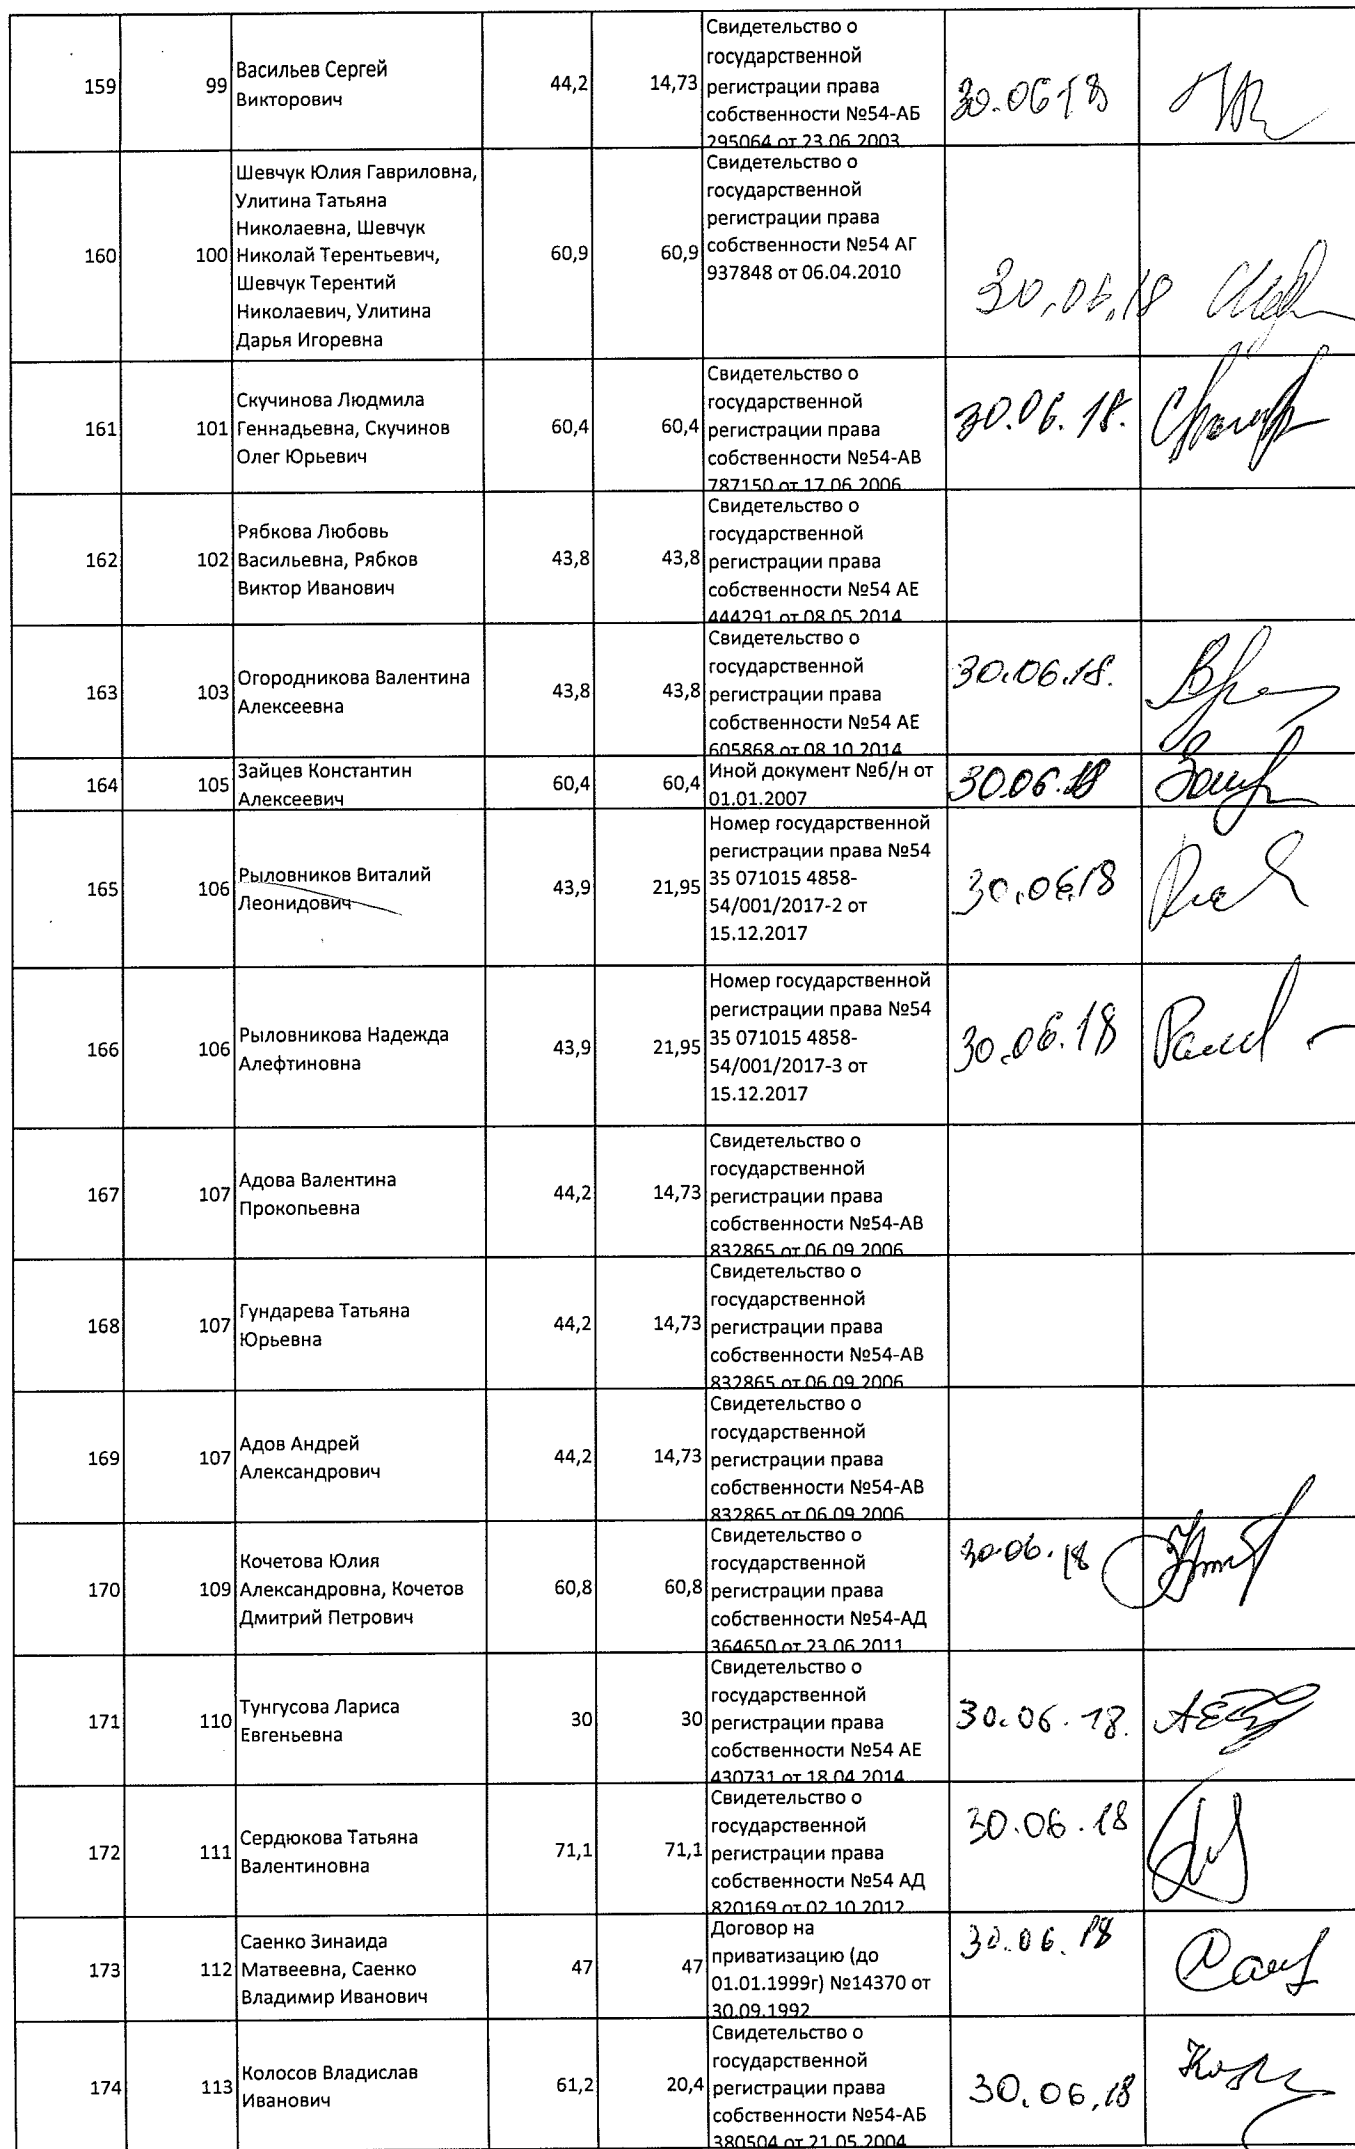 159 99 Васильев Сергей Викторович 44,2 14,73 Свидетельство о государственной регистрации права собственности №54-АБ 295064 от 23.06.2003 30.06 18
160 100 Шевчук Юлия Гавриловна, Улитина Татьяна Николаевна, Шевчук Николай Терентьевич, Шевчук Терентий Николаевич, Улитина Дарья Игоревна 60,9 60,9 Свидетельство о государственной регистрации права собственности №54 АГ 937848 от 06.04.2010 30.06.18
161 101 Скучинова Людмила Геннадьевна, Скучинов Олег Юрьевич 60,4 60,4 Свидетельство о государственной регистрации права собственности №54-АВ 787150 от 17.06.2006 30.06.18.
162 102 Рябкова Любовь Васильевна, Рябков Виктор Иванович 43,8 43,8 Свидетельство о государственной регистрации права собственности №54 АЕ 444291 от 08.05.2014
163 103 Огородникова Валентина Алексеевна 43,8 43,8 Свидетельство о государственной регистрации права собственности №54 АЕ 605868 от 08.10.2014 30.06.18.
164 105 Зайцев Константин Алексеевич 60,4 60,4 Иной документ №б/н от 01.01.2007 30.06.18
165 106 Рыловников Виталий Леонидович 43,9 21,95 Номер государственной регистрации права №54 35 071015 4858-54/001/2017-2 от 15.12.2017 30.06.18
166 106 Рыловникова Надежда Алефтиновна 43,9 21,95 Номер государственной регистрации права №54 35 071015 4858-54/001/2017-3 от 15.12.2017 30.06.18
167 107 Адова Валентина Прокопьевна 44,2 14,73 Свидетельство о государственной регистрации права собственности №54-АВ 832865 от 06.09.2006
168 107 Гундарева Татьяна Юрьевна 44,2 14,73 Свидетельство о государственной регистрации права собственности №54-АВ 832865 от 06.09.2006
169 107 Адов Андрей Александрович 44,2 14,73 Свидетельство о государственной регистрации права собственности №54-АВ 832865 от 06.09.2006
170 109 Кочетова Юлия Александровна, Кочетов Дмитрий Петрович 60,8 60,8 Свидетельство о государственной регистрации права собственности №54-АД 364650 от 23.06.2011 30.06.18
171 110 Тунгусова Лариса Евгеньевна 30 30 Свидетельство о государственной регистрации права собственности №54 АЕ 430731 от 18.04.2014 30.06.18.
172 111 Сердюкова Татьяна Валентиновна 71,1 71,1 Свидетельство о государственной регистрации права собственности №54 АД 820169 от 02.10.2012 30.06.18
173 112 Саенко Зинаида Матвеевна, Саенко Владимир Иванович 47 47 Договор на приватизацию (до 01.01.1999г) №14370 от 30.09.1992 30.06.18
174 113 Колосов Владислав Иванович 61,2 20,4 Свидетельство о государственной регистрации права собственности №54-АБ 380504 от 21.05.2004 30.06.18